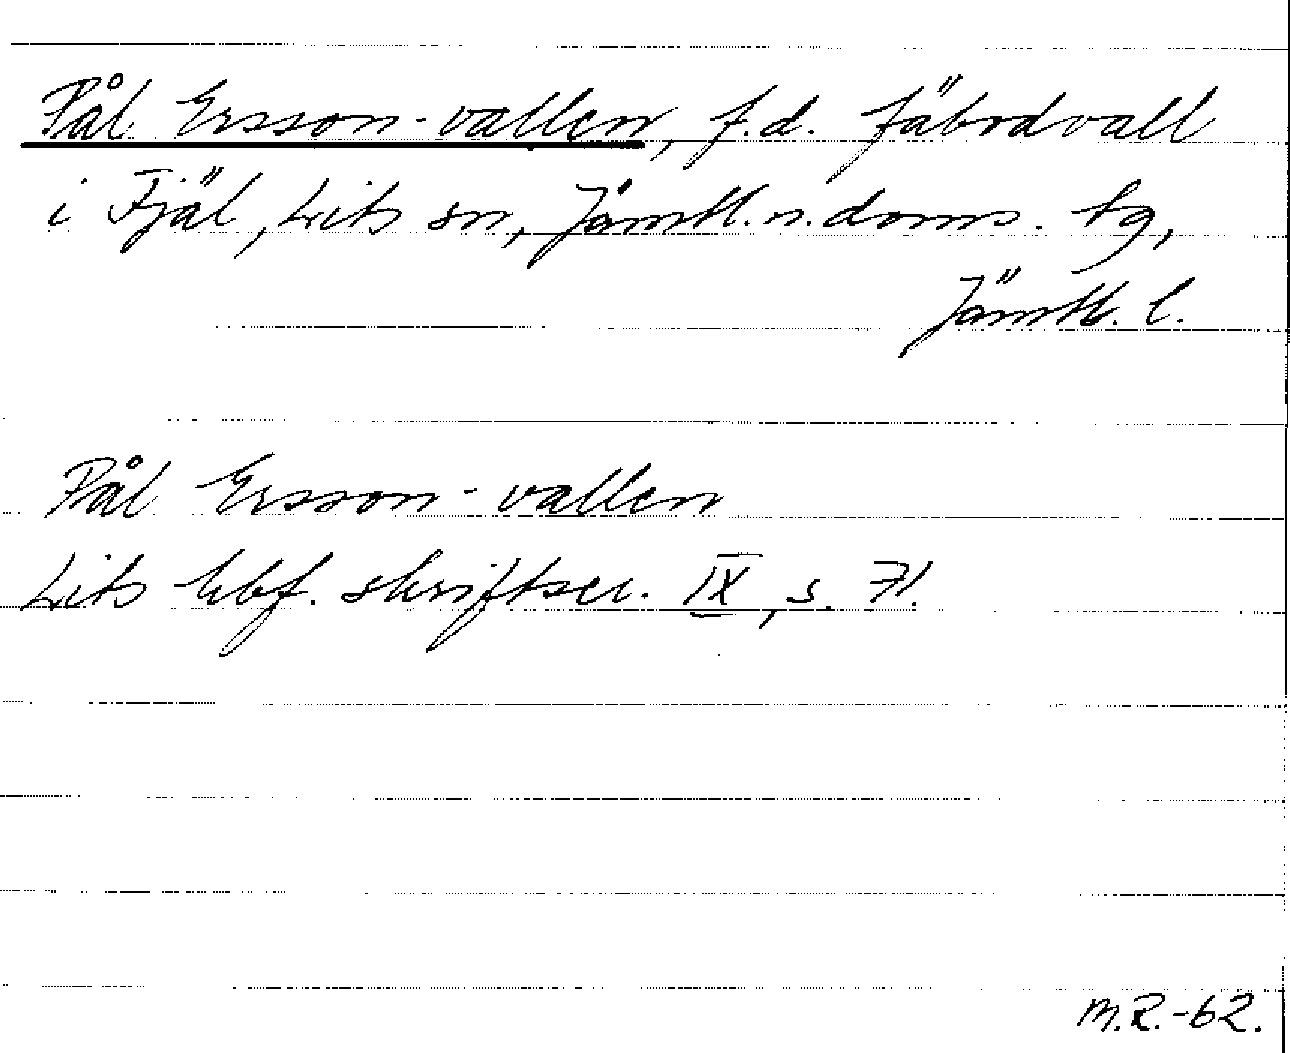 Pål Ersson-vallen, f.d. fäbodvall
i Fjäl, Lits sn, Jämtl. n. doms. tg,
Jämtl. l.
Pål Ersson-vallen
Lits hbf. skriftser. IX, s. 71.
M.R.-62.